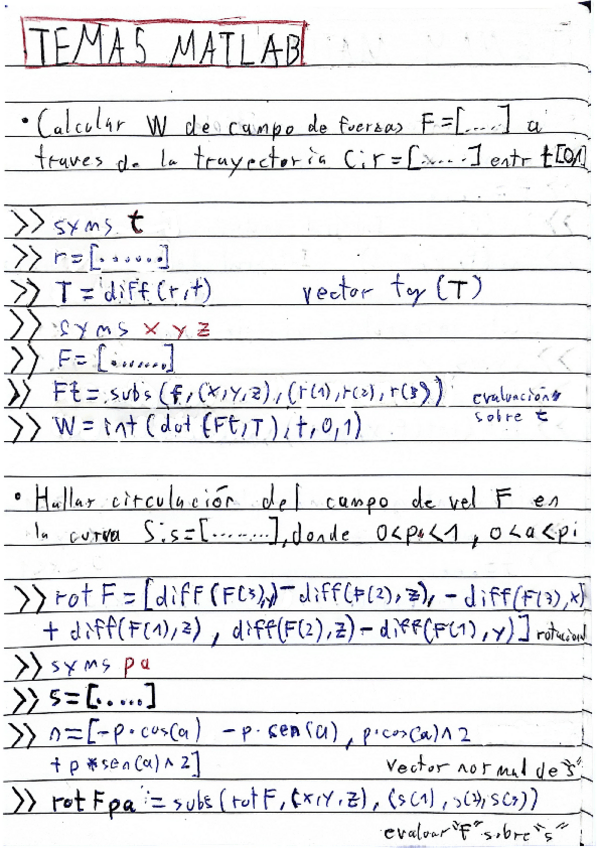 TEMAS MATLAB
• Calcular W de campo de fuerzas F=[.....] a
traves de la trayectoria C:r=[......] entr t[0,1]
>> syms t
>> r=[......]
>> T = diff(r,t) vector tg (T)
>> syms x y z
>> F=[.......]
>> Ft = subs(f,(x,y,z),(r(1),r(2),r(3)) evaluación
sobre t
>> W = int(dot(Ft,T),t,0,1)
• Hallar circulación del campo de vel F en
la curva S:s=[........], donde 0<p<1, 0<a<pi
>> rot F = [diff(F(3),y)-diff(F(2),z), -diff(F(3),x)
+ diff(F(1),z), diff(F(2),z)-diff(F(1),y)] rotacional
>> syms p a
>> S=[.....]
>> n=[-p·cos(a) -p·sen(a), p·cos(a)^2
+p*sen(a)^2] vector normal de "s"
>> rotFpa = subs(rotF,(x,y,z),(s(1),s(2),s(3))
evaluar "F" sobre "s"